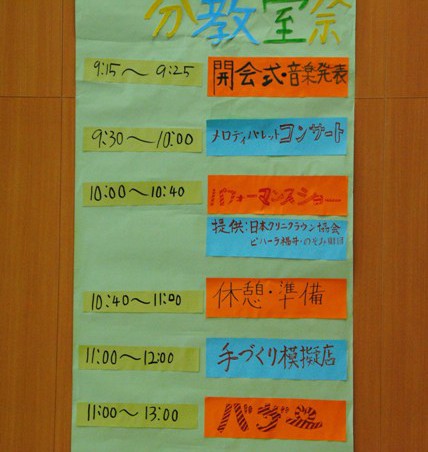 分教室祭
9:15～9:25
開会式・音楽発表
9:30～10:00
メロディパレットコンサート
10:00～10:40
パフォーマンスショー
提供：日本クリニクラウン協会
ビハーラ福井・のぞみ財団
10:40～11:00
休憩・準備
11:00～12:00
手づくり模擬店
11:00～13:00
バザー